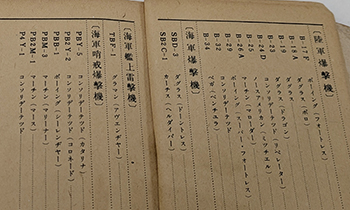 〔陸軍爆撃機〕
B-17F ボーイング（フォートレス）
B-18A ダグラス（ボロ）
B-19 ダグラス
B-23 ダグラス（ドラゴン）
B-24D コンソリデーテッド（リベレーター）
B-25 ノースアメリカン（ミツチエル）
B-26A マーチン
B-29 ボーイング（スーパー・フォートレス）
B-32 コンソリデーテッド
B-34 ベガ（ベンチュラ）
〔海軍爆撃機〕
SBD-3 ダグラス（ドーントレス）
SB2C-1 カーチス（ヘルダイバー）
〔海軍艦上雷撃機〕
TBF-1 グラマン（アヴエンヂヤー）
〔海軍哨戒爆撃機〕
PBY-5 コンソリデーテツド（カタリナ）
PB2Y-2 コンソリデーテツド（コロネード）
PBB-1 ボーイング（シーレンヂヤー）
PBM-3 マーチン（マリーナー）
PB2M-1 マーチン（マース）
P4Y-1 コンソリデーテツド